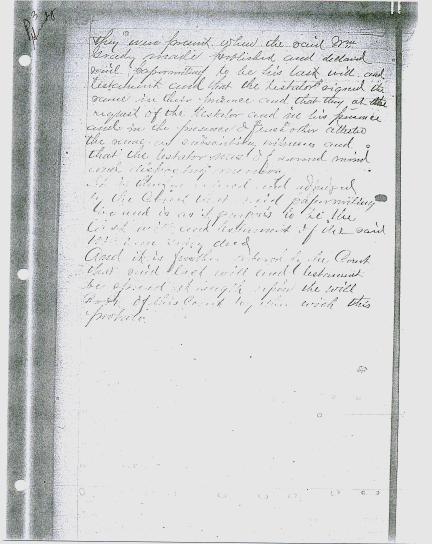 they were present when the said Wm
Grady made published and declared
said paperwriting to be his last will and
testament and that the testator signed the
same in their presence and that they at the
request of the testator and in his presence
and in the presence of each other attested
the same as subscribing witnesses and
that the testator was of sound mind
and disposing memory
It is therefore and adjudged
by the Court that said paperwriting
be and is as it purports to be the
last will and testament of the said
decd
And it is further ordered by the Court
that said last will and testament
be spread at length upon the will
book of this Court together with this
probate